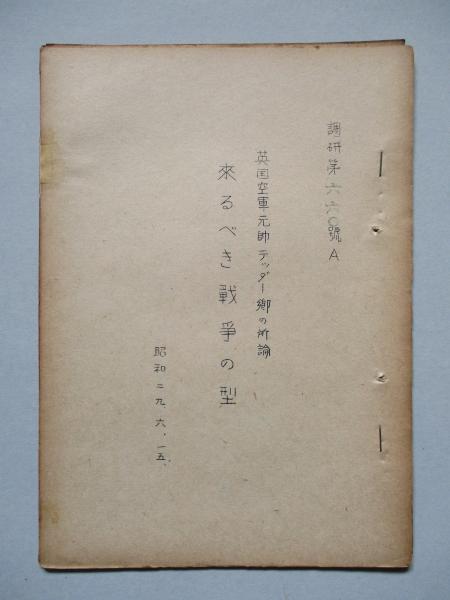 調研第六六〇號A
英国空軍元帥テッダー鄉の所論
來るべき戦爭の型
昭和二九、六、一五、